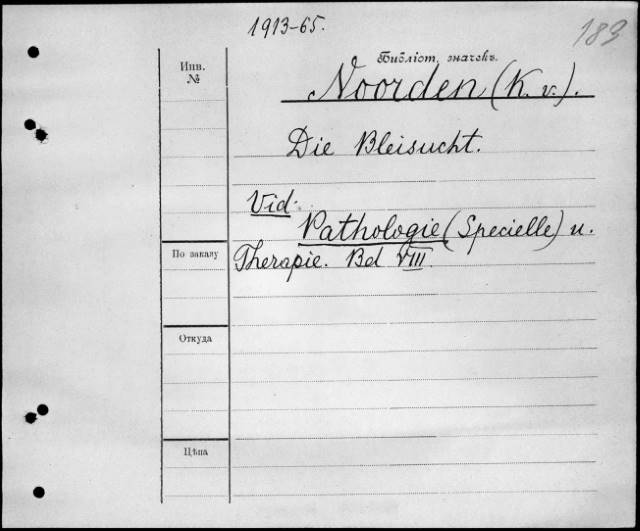 1913-65.
183
Библіот. значекъ.
Инв.
№
Noorden (K. v.).
Die Bleisucht.
Vid.
Pathologie (Specielle) u.
По заказу
Therapie. Bd VIII.
Откуда
Цѣна